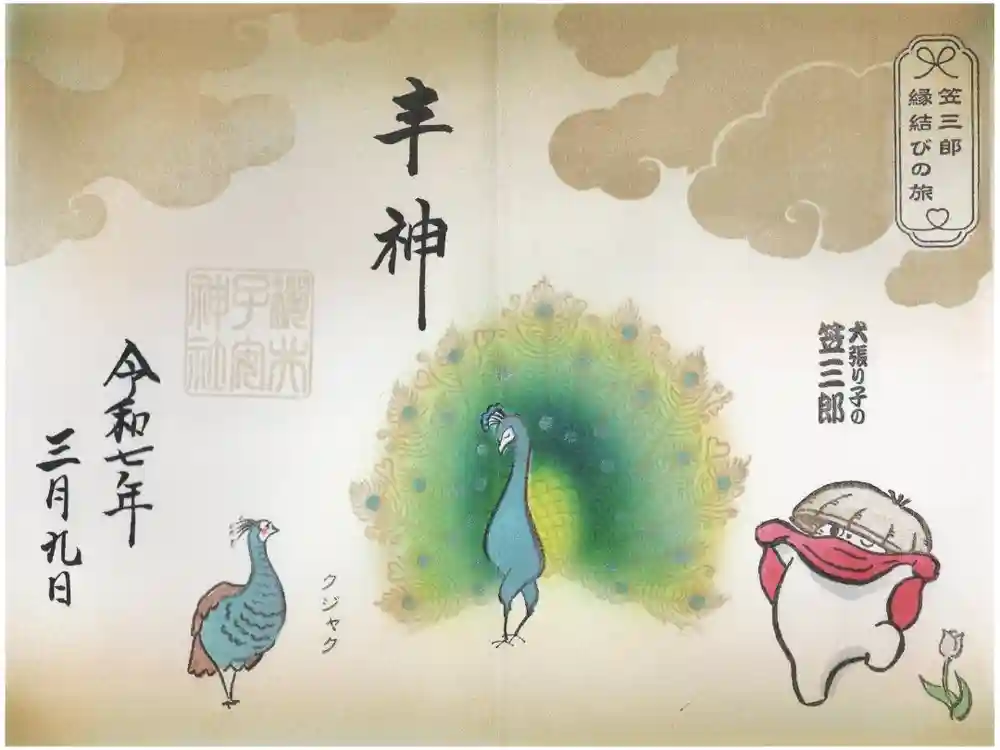 笠三郎
縁結びの旅
犬張り子の
笠三郎
丰神
子安
神社
クジャク
令和七年
三月九日